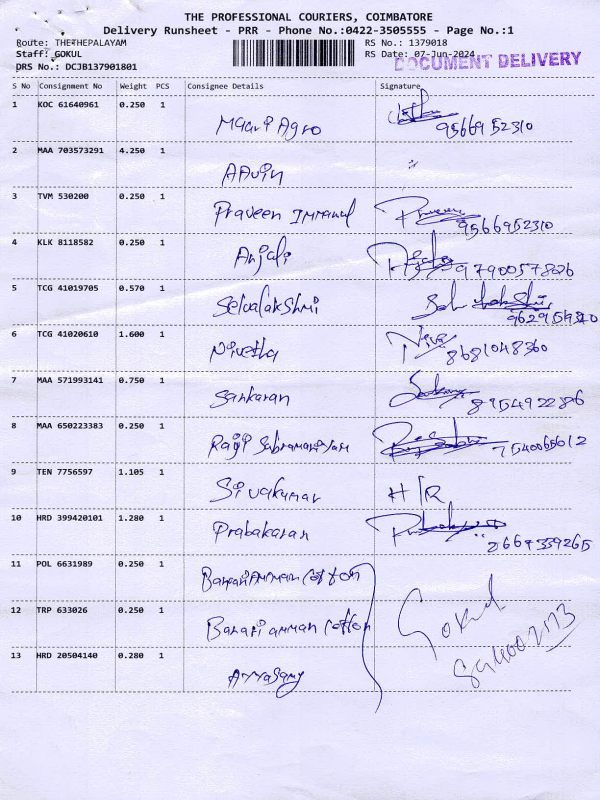 THE PROFESSIONAL COURIERS, COIMBATORE
Delivery Runsheet - PRR - Phone No.:0422-3505555 - Page No.:1
Route: THETHEPALAYAM RS No.: 1379018
Staff: GOKUL RS Date: 07-Jun-2024
DOCUMENT DELIVERY
DRS No.: DCJB137901801
S No Consignment No Weight PCS Consignee Details Signature
1 KOC 61640961 0.250 1 Maari Agro
9566952310
2 MAA 703573291 4.250 1 AAvin
3 TVM 530200 0.250 1 Praveen Immanul Praveen
9566952310
4 KLK 8118582 0.250 1 Anjali
9790057826
5 TCG 41019705 0.570 1 Selvalakshmi
6 TCG 41020610 1.600 1 Nivetha Nive
8681048360
7 MAA 571993141 0.750 1 Sankaran
8954922386
8 MAA 650223383 0.250 1
7540065612
9 TEN 7756597 1.105 1 Sivakumar H/R
10 HRD 399420101 1.280 1 Prabakaran
2669359265
11 POL 6631989 0.250 1 Cotton
12 TRP 633026 0.250 1 Banari amman Cotton Gokul
13 HRD 20504140 0.280 1 Ayyasamy